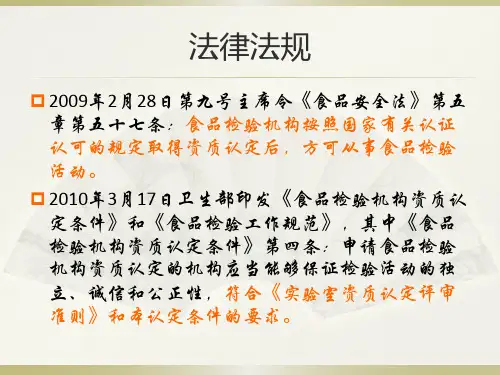 法律法规
2009年2月28日第九号主席令《食品安全法》第五
章第五十七条：食品检验机构按照国家有关认证
认可的规定取得资质认定后，方可从事食品检验
活动。
2010年3月17日卫生部印发《食品检验机构资质认
定条件》和《食品检验工作规范》，其中《食品
检验机构资质认定条件》第四条：申请食品检验
机构资质认定的机构应当能够保证检验活动的独
立、诚信和公正性，符合《实验室资质认定评审
准则》和本认定条件的要求。